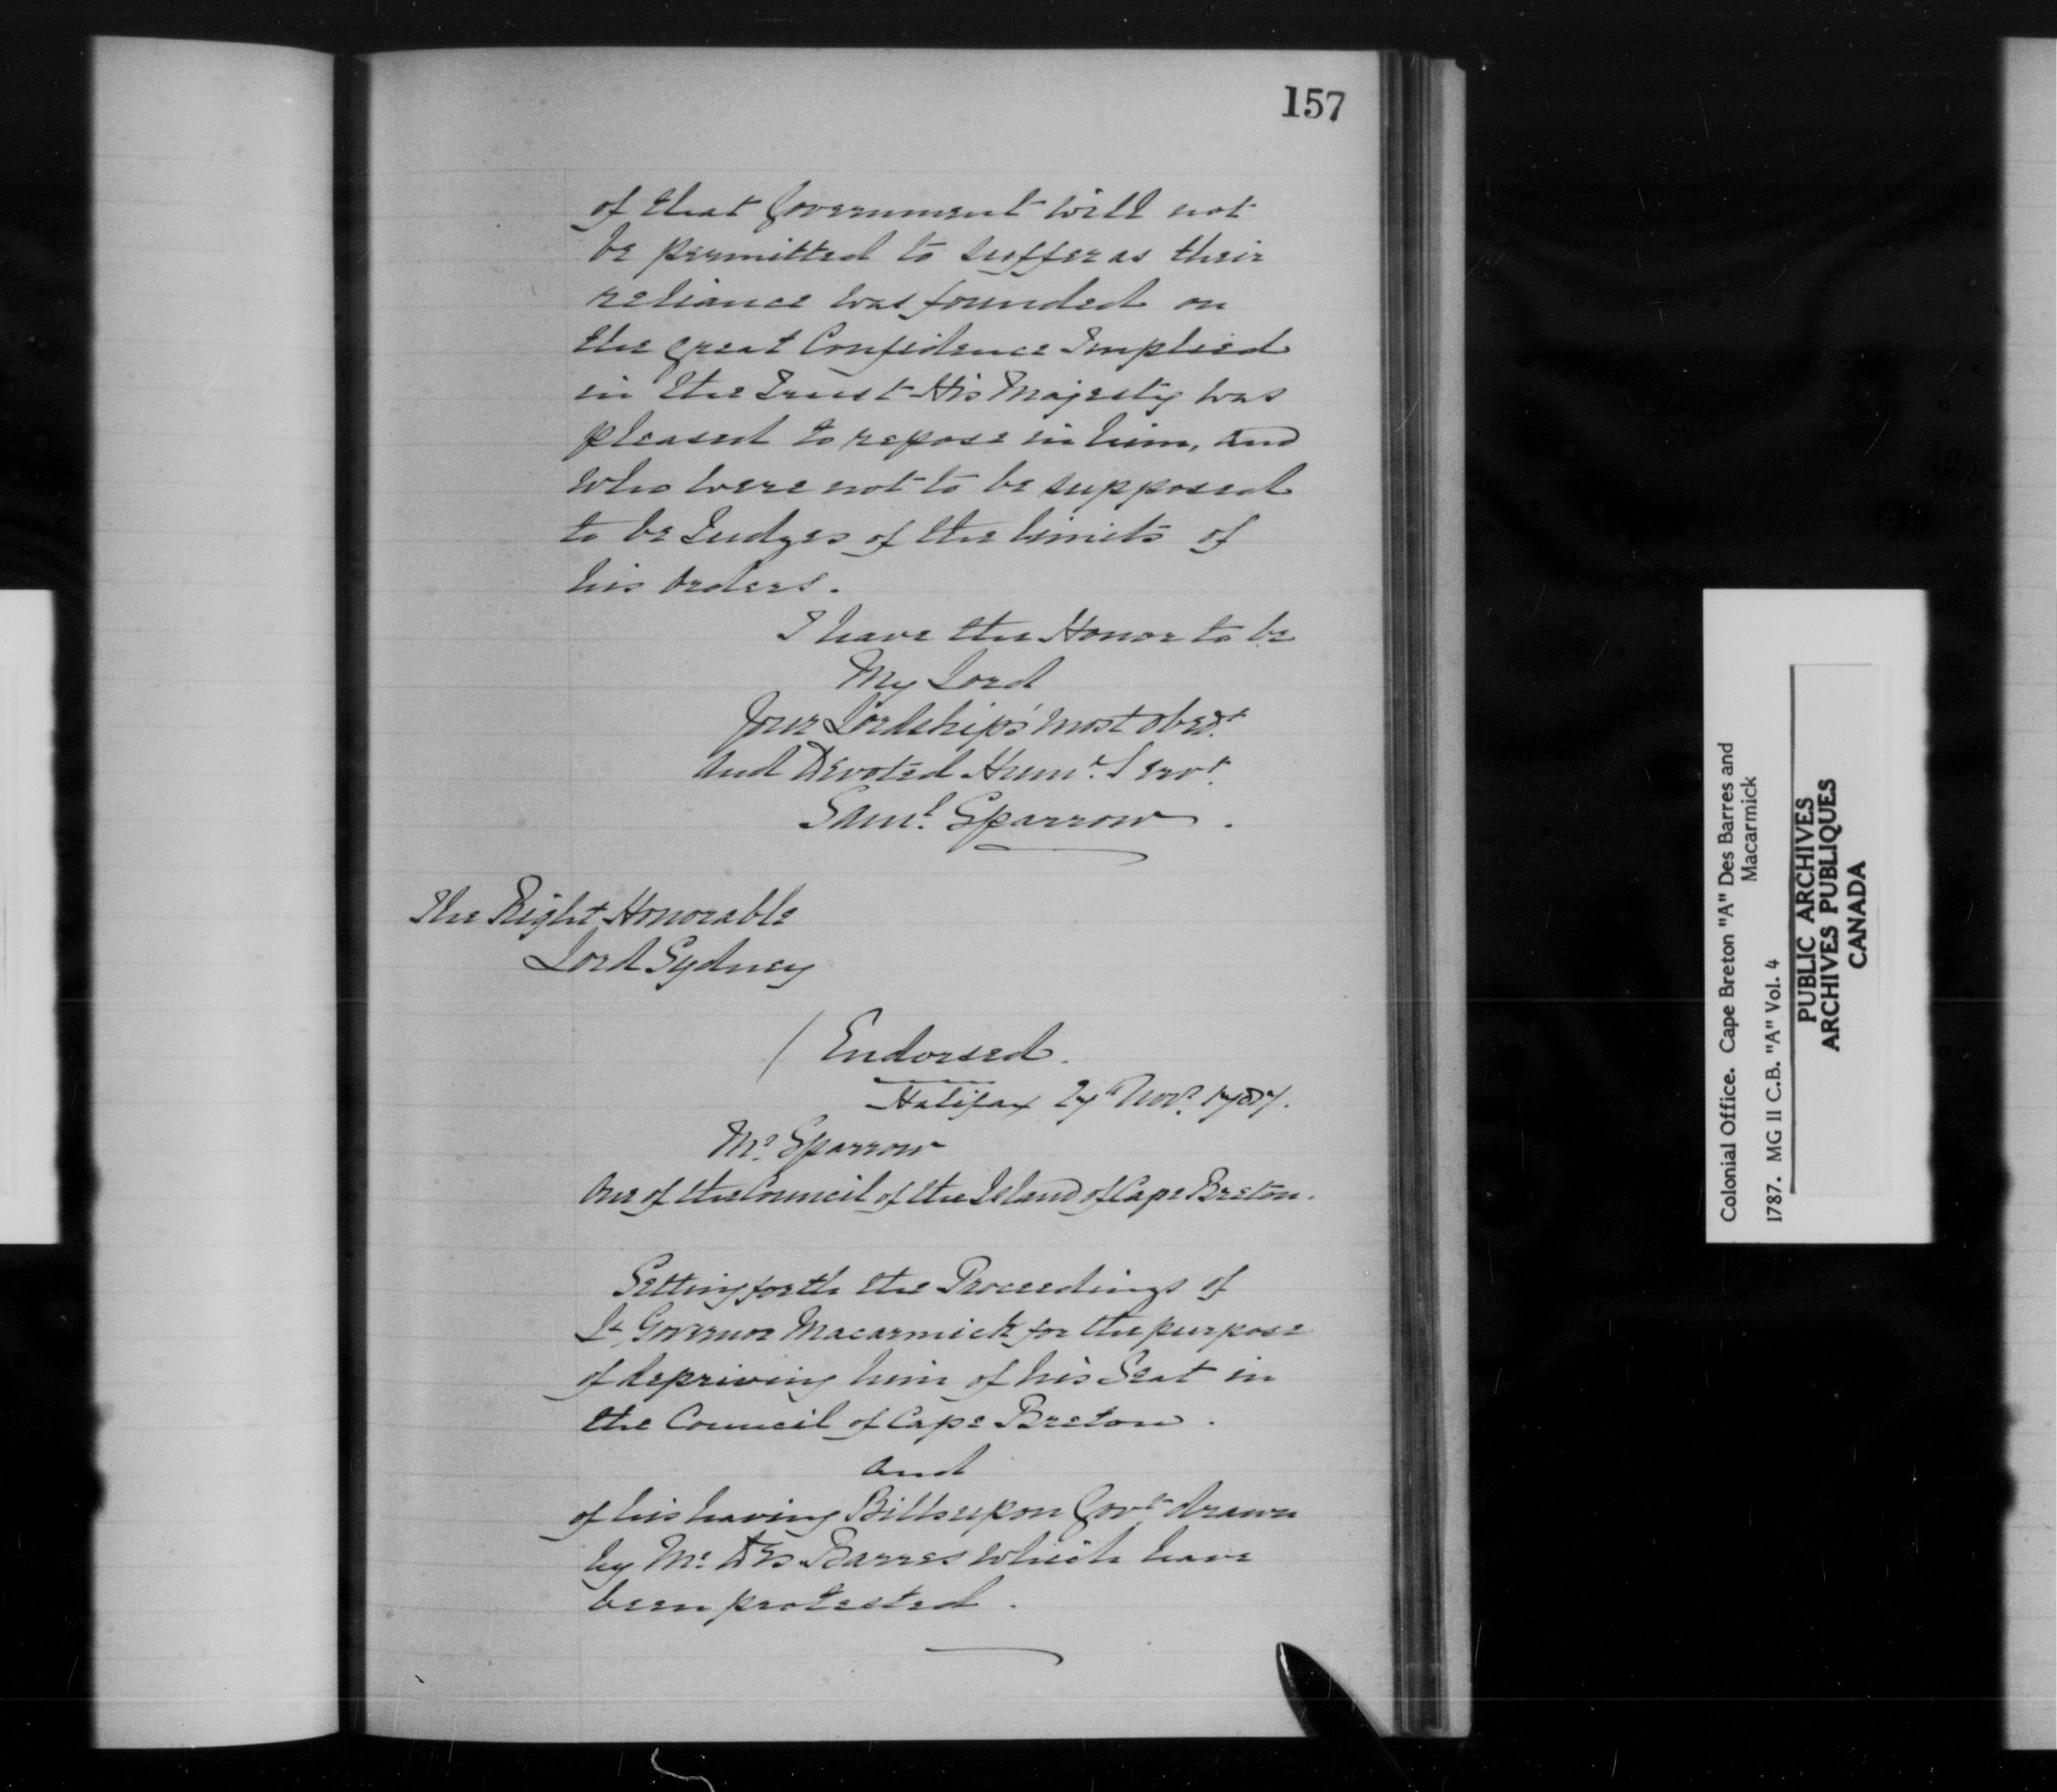 157
of that Government will not
be permitted to suffer as their
reliance was founded on
the great Confidence Implied
in the Trust His Majesty was
pleased to repose in him, and
who were not to be supposed
to be Judges of the limits of
his Orders.
I have the Honor to be
My Lord
Your Lordship's most obedt.
And Devoted Hume. Servt.
Saml. Sparrow.
The Right Honorable
Lord Sydney
/ Endorsed.
Halifax 27th Novr. 1787.
Mr. Sparrow
One of the Council of the Island of Cape Breton.
Setting forth the Proceedings of
Lt. Governor Macarmick for the purpose
of depriving him of his Seat in
the Council of Cape Breton.
and
of his having Bills upon Govt. drawn
by Mr. Des Barres which have
been protested.
Colonial Office. Cape Breton "A" Des Barres and
Macarmick
1787. MG 11 C.B. "A" Vol. 4
PUBLIC ARCHIVES
ARCHIVES PUBLIQUES
CANADA